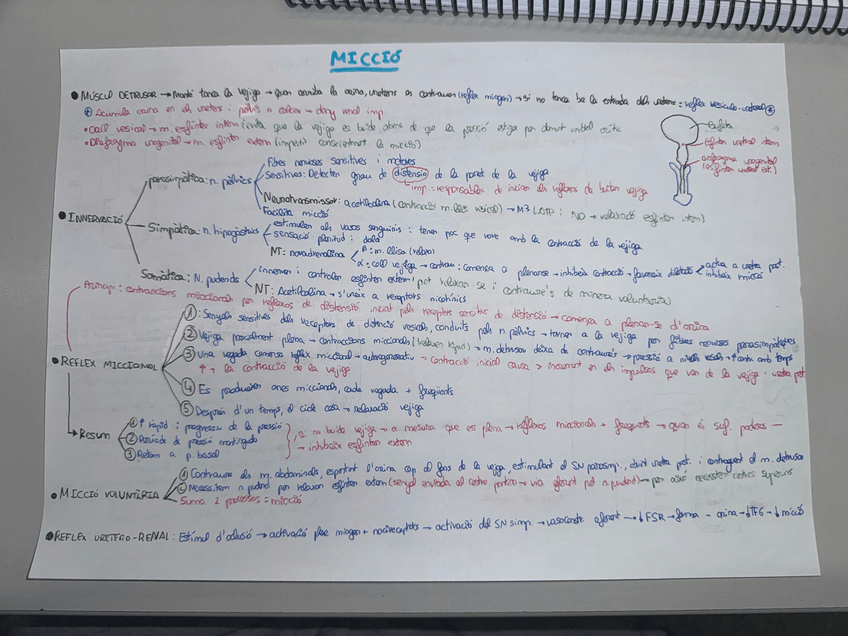 MICCIÓ
MÚSCUL DETRUSOR → Manté tanca la vejiga → quan arriba la orina, ureters es contrauen (reflex miogen) → si no tanca be la entrada dels ureters = reflex vesiculo-ureteral
Acumula orina en els ureters i pelvis o calzer → dany renal imp.
• Coll vesical → m. esfínter intern (evita que la vejiga es buide abans de que la pressió estiga per damunt umbral crític
• Diafragma urogenital → m. esfínter extern (impedir conscientment la micció)
Bufeta
Esfínter uretral intern
diafragma urogenital
(esfínter uretral ext.)
INNERVACIÓ
parasimpàtica: n. pèlvics
Fibres nervoses sensitives i motores
Sensitives: Detecten grau de distensió de la paret de la vejiga
imp: responsables de iniciar els reflexos de buidar vejiga
Neurotransmissor: acetilcolina (contracció m. llis vesical) → M3
Facilita micció
Simpàtica: n. hipogàstrics
estimulen els vasos sanguinis: tenen poc que vore amb la contracció de la vejiga
sensació plenitud: dolor
NT: noradrenalina
β: m. llisa (relaxa)
α: coll vejiga → contrau: comença a plenar-se → inhibeix contracció → favoreix dilatació
activa a uretra post.
inhibeix micció
Somàtica: N. pudends
innerven i controlen esfínter extern
NT: Acetilcolina → s'uneix a receptors nicotínics
(pot relaxar-se i contraure's de manera voluntaria)
REFLEX MICCIONAL
Principi: contraccions miccionals per reflexos de distensió iniciat pels receptors sensitius de distensió → comença a plenar-se d'orina
①: Senyals sensitives dels receptors de distenció vesicals, conduits pels n. pèlvics → tornen a la vejiga per fibres nervoses parasimpàtiques
② Vejiga parcialment plena → contraccions miccionals (relaxen ràpid) → m. detrusor deixa de contraure's → pressió a nivell basal → ↑ contr. amb temps
③ Una vegada comença reflex miccional → autoregeneratiu → contracció inicial causa > increment en els impulsos que van de la vejiga i uretra post.
↑ la contracció de la vejiga
④ Es produeixen ones miccionals, cada vegada + freqüents
⑤ Després d'un temps, el cicle cesa → relaxació vejiga
Resum
① ↑ ràpid i progressiu de la pressió
② Període de pressió mantinguda
③ Retorn a p. basal
no buida vejiga → a mesura que es plena → reflexos miccionals + freqüents → quan és suf. poderós →
→ inhibeix esfínter extern
MICCIÓ VOLUNTÀRIA
① Contraure els m. abdominals, espentant l'orina cap al fons de la vejiga, estimulant el SN parasimp., obrint uretra post. i contraguent el m. detrusor
② Necessitem n. pudend per relaxar esfínter extern (senyal enviada al centre pontino → via eferent pel n. pudend) → per això necessitem centres superiors
Suma 2 processos = micció
REFLEX URETERO-RENAL: Estímul d'oclusió → activació plexe miogen + nociceptors → activació del SN simp. → vasoconstr. aferent → ↓FSR → forma - orina → ↓TFG → ↓micció